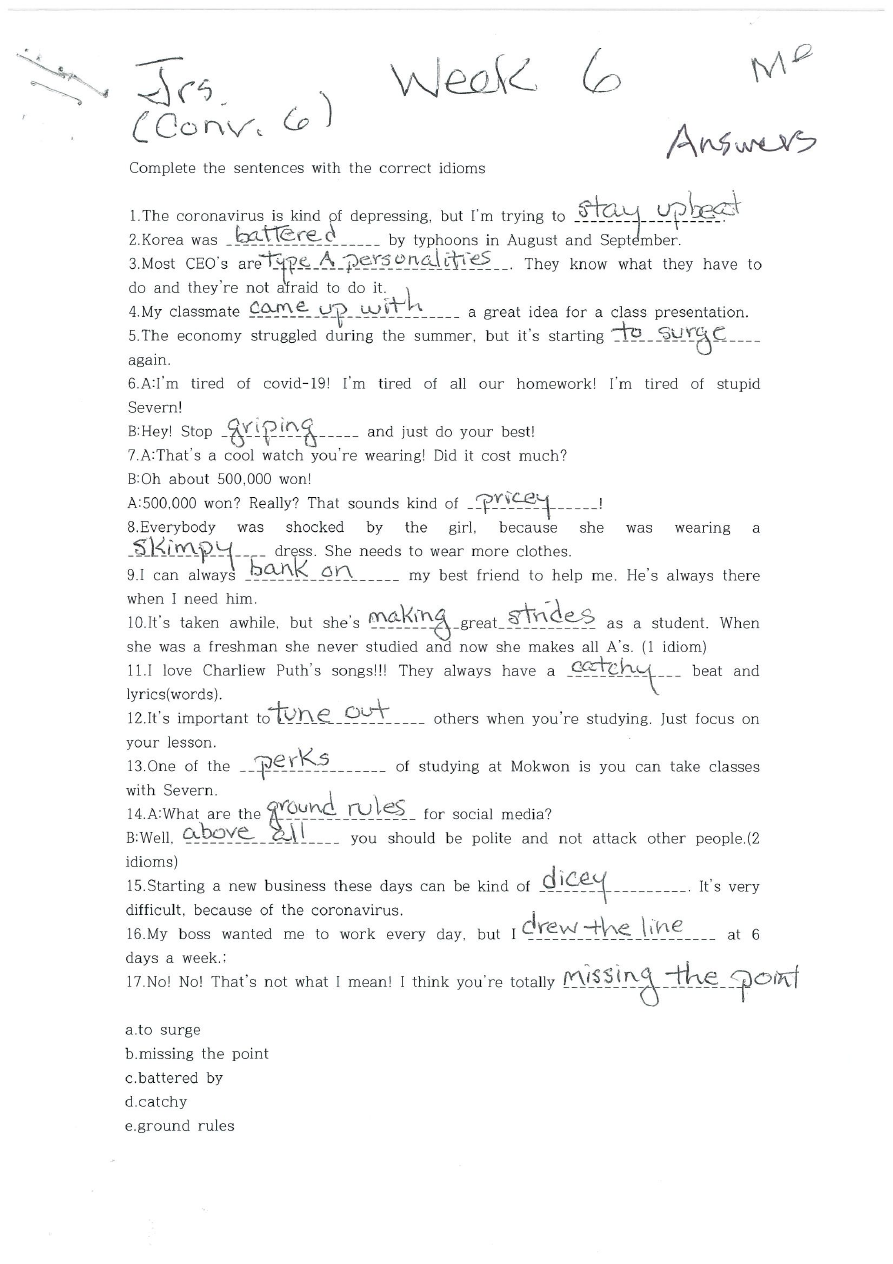 Jrs. Week 6 Me
(Conv. 6) Answers
Complete the sentences with the correct idioms
1.The coronavirus is kind of depressing, but I'm trying to stay upbeat
2.Korea was battered by typhoons in August and September.
3.Most CEO's are type A personalities. They know what they have to
do and they're not afraid to do it.
4.My classmate came up with a great idea for a class presentation.
5.The economy struggled during the summer, but it's starting to surge
again.
6.A:I'm tired of covid-19! I'm tired of all our homework! I'm tired of stupid
Severn!
B:Hey! Stop griping and just do your best!
7.A:That's a cool watch you're wearing! Did it cost much?
B:Oh about 500,000 won!
A:500,000 won? Really? That sounds kind of pricey!
8.Everybody was shocked by the girl, because she was wearing a
skimpy dress. She needs to wear more clothes.
9.I can always bank on my best friend to help me. He's always there
when I need him.
10.It's taken awhile, but she's making great strides as a student. When
she was a freshman she never studied and now she makes all A's. (1 idiom)
11.I love Charliew Puth's songs!!! They always have a catchy beat and
lyrics(words).
12.It's important to tune out others when you're studying. Just focus on
your lesson.
13.One of the perks of studying at Mokwon is you can take classes
with Severn.
14.A:What are the ground rules for social media?
B:Well, above all you should be polite and not attack other people.(2
idioms)
15.Starting a new business these days can be kind of dicey. It's very
difficult, because of the coronavirus.
16.My boss wanted me to work every day, but I drew the line at 6
days a week.;
17.No! No! That's not what I mean! I think you're totally missing the point
a.to surge
b.missing the point
c.battered by
d.catchy
e.ground rules